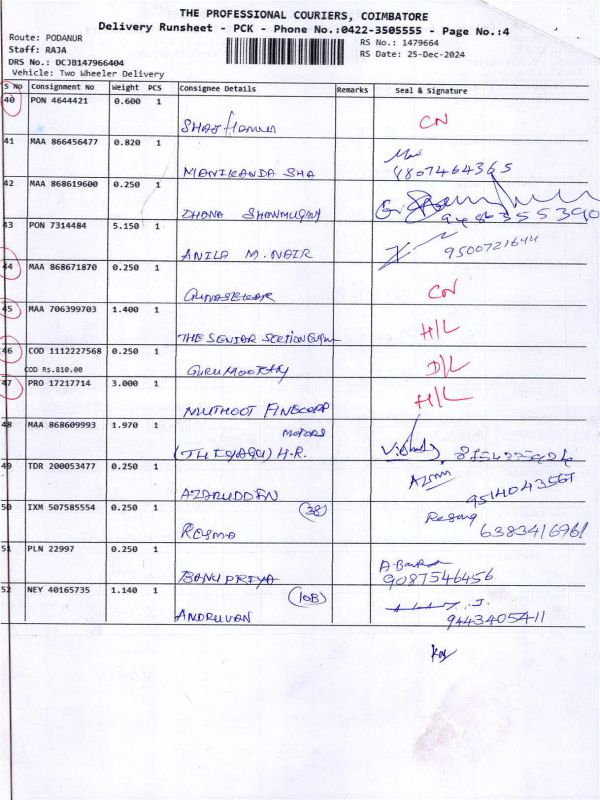 THE PROFESSIONAL COURIERS, COIMBATORE
Delivery Runsheet - PCK - Phone No.:0422-3505555 - Page No.:4
Route: PODANUR
RS No.: 1479664
Staff: RAJA
RS Date: 25-Dec-2024
DRS No.: DCJB147966404
Vehicle: Two Wheeler Delivery
S No Consignment No Weight PCS Consignee Details Remarks Seal & Signature
40 PON 4644421 0.600 1
CN
41 MAA 866456477 0.820 1
MANIKANDA SHA
42 MAA 868619600 0.250 1
DHANA SHANMUGAM
43 PON 7314484 5.150 1
ANILA M.NAIR 9500721644
44 MAA 868671870 0.250 1
GUNASEKAR CN
45 MAA 706399703 1.400 1
THE SENIOR SECTION H/L
46 COD 1112227568 0.250 1
COD Rs.810.00
GURUMOORTHY D/L
47 PRO 17217714 3.000 1
MUTHOOT FINECORP H/L
48 MAA 868609993 1.970 1
MOTORS
(THIYAGU) H-R.
49 TDR 200053477 0.250 1
AZARUDDEN
50 IXM 507585554 0.250 1
(38)
RESMA 6383416961
51 PLN 22997 0.250 1
BANUPRIYA 9087546456
52 NEY 40165735 1.140 1
(10B)
ANDRUVAN 9443405411